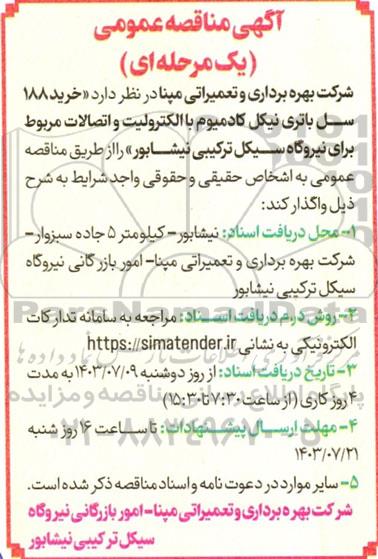 آگهی مناقصه عمومی
(یک مرحله ای)
شرکت بهره برداری و تعمیراتی مپنا در نظر دارد «خرید ۱۸۸
سل باتری نیکل کادمیوم با الکترولیت و اتصالات مربوط
برای نیروگاه سیکل ترکیبی نیشابور» را از طریق مناقصه
عمومی به اشخاص حقیقی و حقوقی واجد شرایط به شرح
ذیل واگذار کند:
۱- محل دریافت اسناد: نیشابور - کیلومتر ۵ جاده سبزوار -
شرکت بهره برداری و تعمیراتی مپنا- امور بازرگانی نیروگاه
سیکل ترکیبی نیشابور
۲- روش دوم دریافت اسناد: مراجعه به سامانه تدارکات
الکترونیکی به نشانی https://simatender.ir
۳- تاریخ دریافت اسناد: از روز دوشنبه ۱۴۰۳/۰۷/۰۹ به مدت
۴ روز کاری (از ساعت ۷:۳۰ تا ۱۵:۳۰)
۴- مهلت ارسال پیشنهادات: تا ساعت ۱۶ روز شنبه
۱۴۰۳/۰۷/۲۱
۵- سایر موارد در دعوت نامه و اسناد مناقصه ذکر شده است.
شرکت بهره برداری و تعمیراتی مپنا- امور بازرگانی نیروگاه
سیکل ترکیبی نیشابور
ParsNamadData